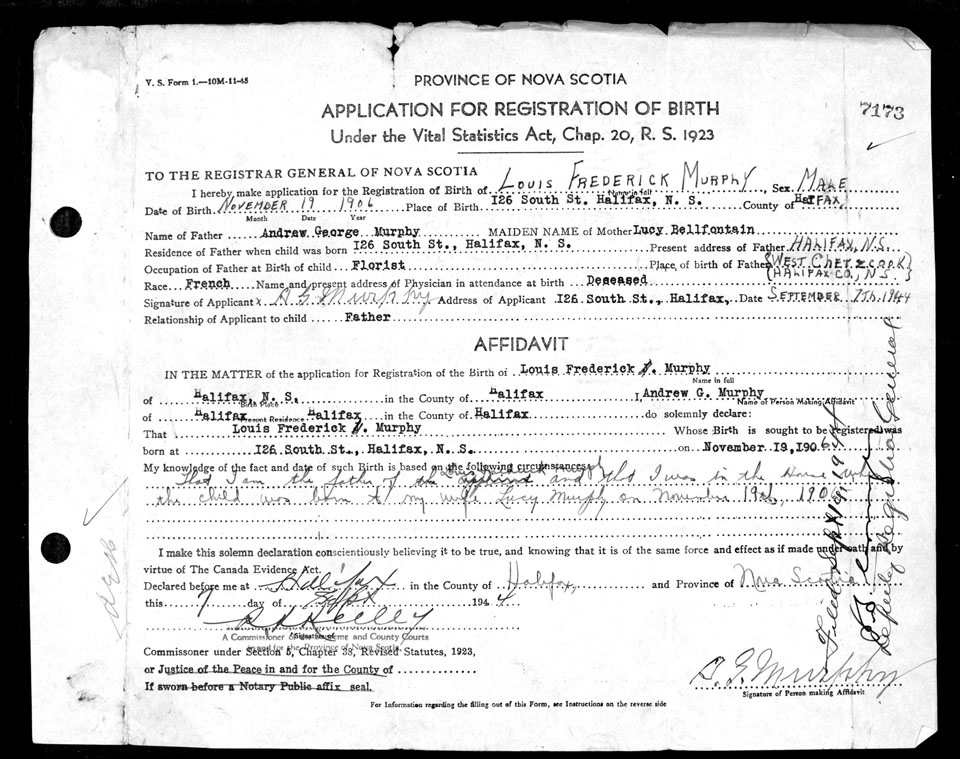 V. S. Form 1.—10M-11-45
PROVINCE OF NOVA SCOTIA
APPLICATION FOR REGISTRATION OF BIRTH
7173
Under the Vital Statistics Act, Chap. 20, R. S. 1923
TO THE REGISTRAR GENERAL OF NOVA SCOTIA
I hereby make application for the Registration of Birth of LOUIS FREDERICK MURPHY, Sex MALE
Name in full
Date of Birth NOVEMBER 19 1906 Place of Birth 126 South St. Halifax, N. S. County of Halifax
Month Date Year
Name of Father Andrew George Murphy MAIDEN NAME of Mother Lucy Bellfontain
Residence of Father when child was born 126 South St., Halifax, N. S. Present address of Father HALIFAX, N.S.
Occupation of Father at Birth of child Florist Place of birth of Father {WEST CHEZZCOOK}
Race French Name and present address of Physician in attendance at birth Deseased {HALIFAX CO., N.S.}
Signature of Applicant x A G Murphy Address of Applicant 126 South St., Halifax, Date SEPTEMBER 7th, 1944
Relationship of Applicant to child Father
AFFIDAVIT
IN THE MATTER of the application for Registration of the Birth of Louis Frederick J. Murphy
Name in full
of Halifax, N. S. in the County of Halifax I, Andrew G. Murphy
Birth Place Name of Person Making Affidavit
of Halifax Halifax in the County of Halifax do solemnly declare:
Present Residence
That Louis Frederick J. Murphy Whose Birth is sought to be registered was
born at 126 South St., Halifax, N. S. on November 19, 1906
My knowledge of the fact and date of such Birth is based on the following circumstances
That I am the father of the Louis applicant and that I was in the House when
the child was born to my wife Lucy Murphy on November 19th, 1906
I make this solemn declaration conscientiously believing it to be true, and knowing that it is of the same force and effect as if made under oath and by
virtue of The Canada Evidence Act.
Declared before me at Halifax in the County of Halifax, and Province of Nova Scotia
this 7 day of Sept 1944
A Commissioner of the Supreme and County Courts
Signature of
in and for the Province of Nova Scotia
Commissioner under Section 6, Chapter 38, Revised Statutes, 1923,
or Justice of the Peace in and for the County of
If sworn before a Notary Public affix seal.
A. G. Murphy
Signature of Person making Affidavit
For Information regarding the filling out of this Form, see Instructions on the reverse side
Filed Sept 15th 1944
Deputy Registrar General